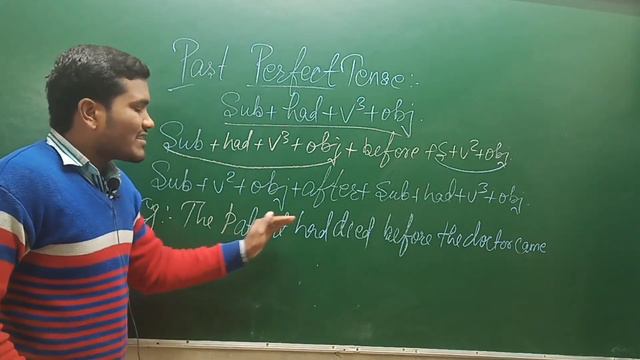 Past Perfect Tense:-
Sub + had + V³ + obj.
Sub + had + V³ + obj + before + S + V² + obj.
Sub + V² + obj + after + Sub + had + V³ + obj.
Eg:- The had died before the doctor came